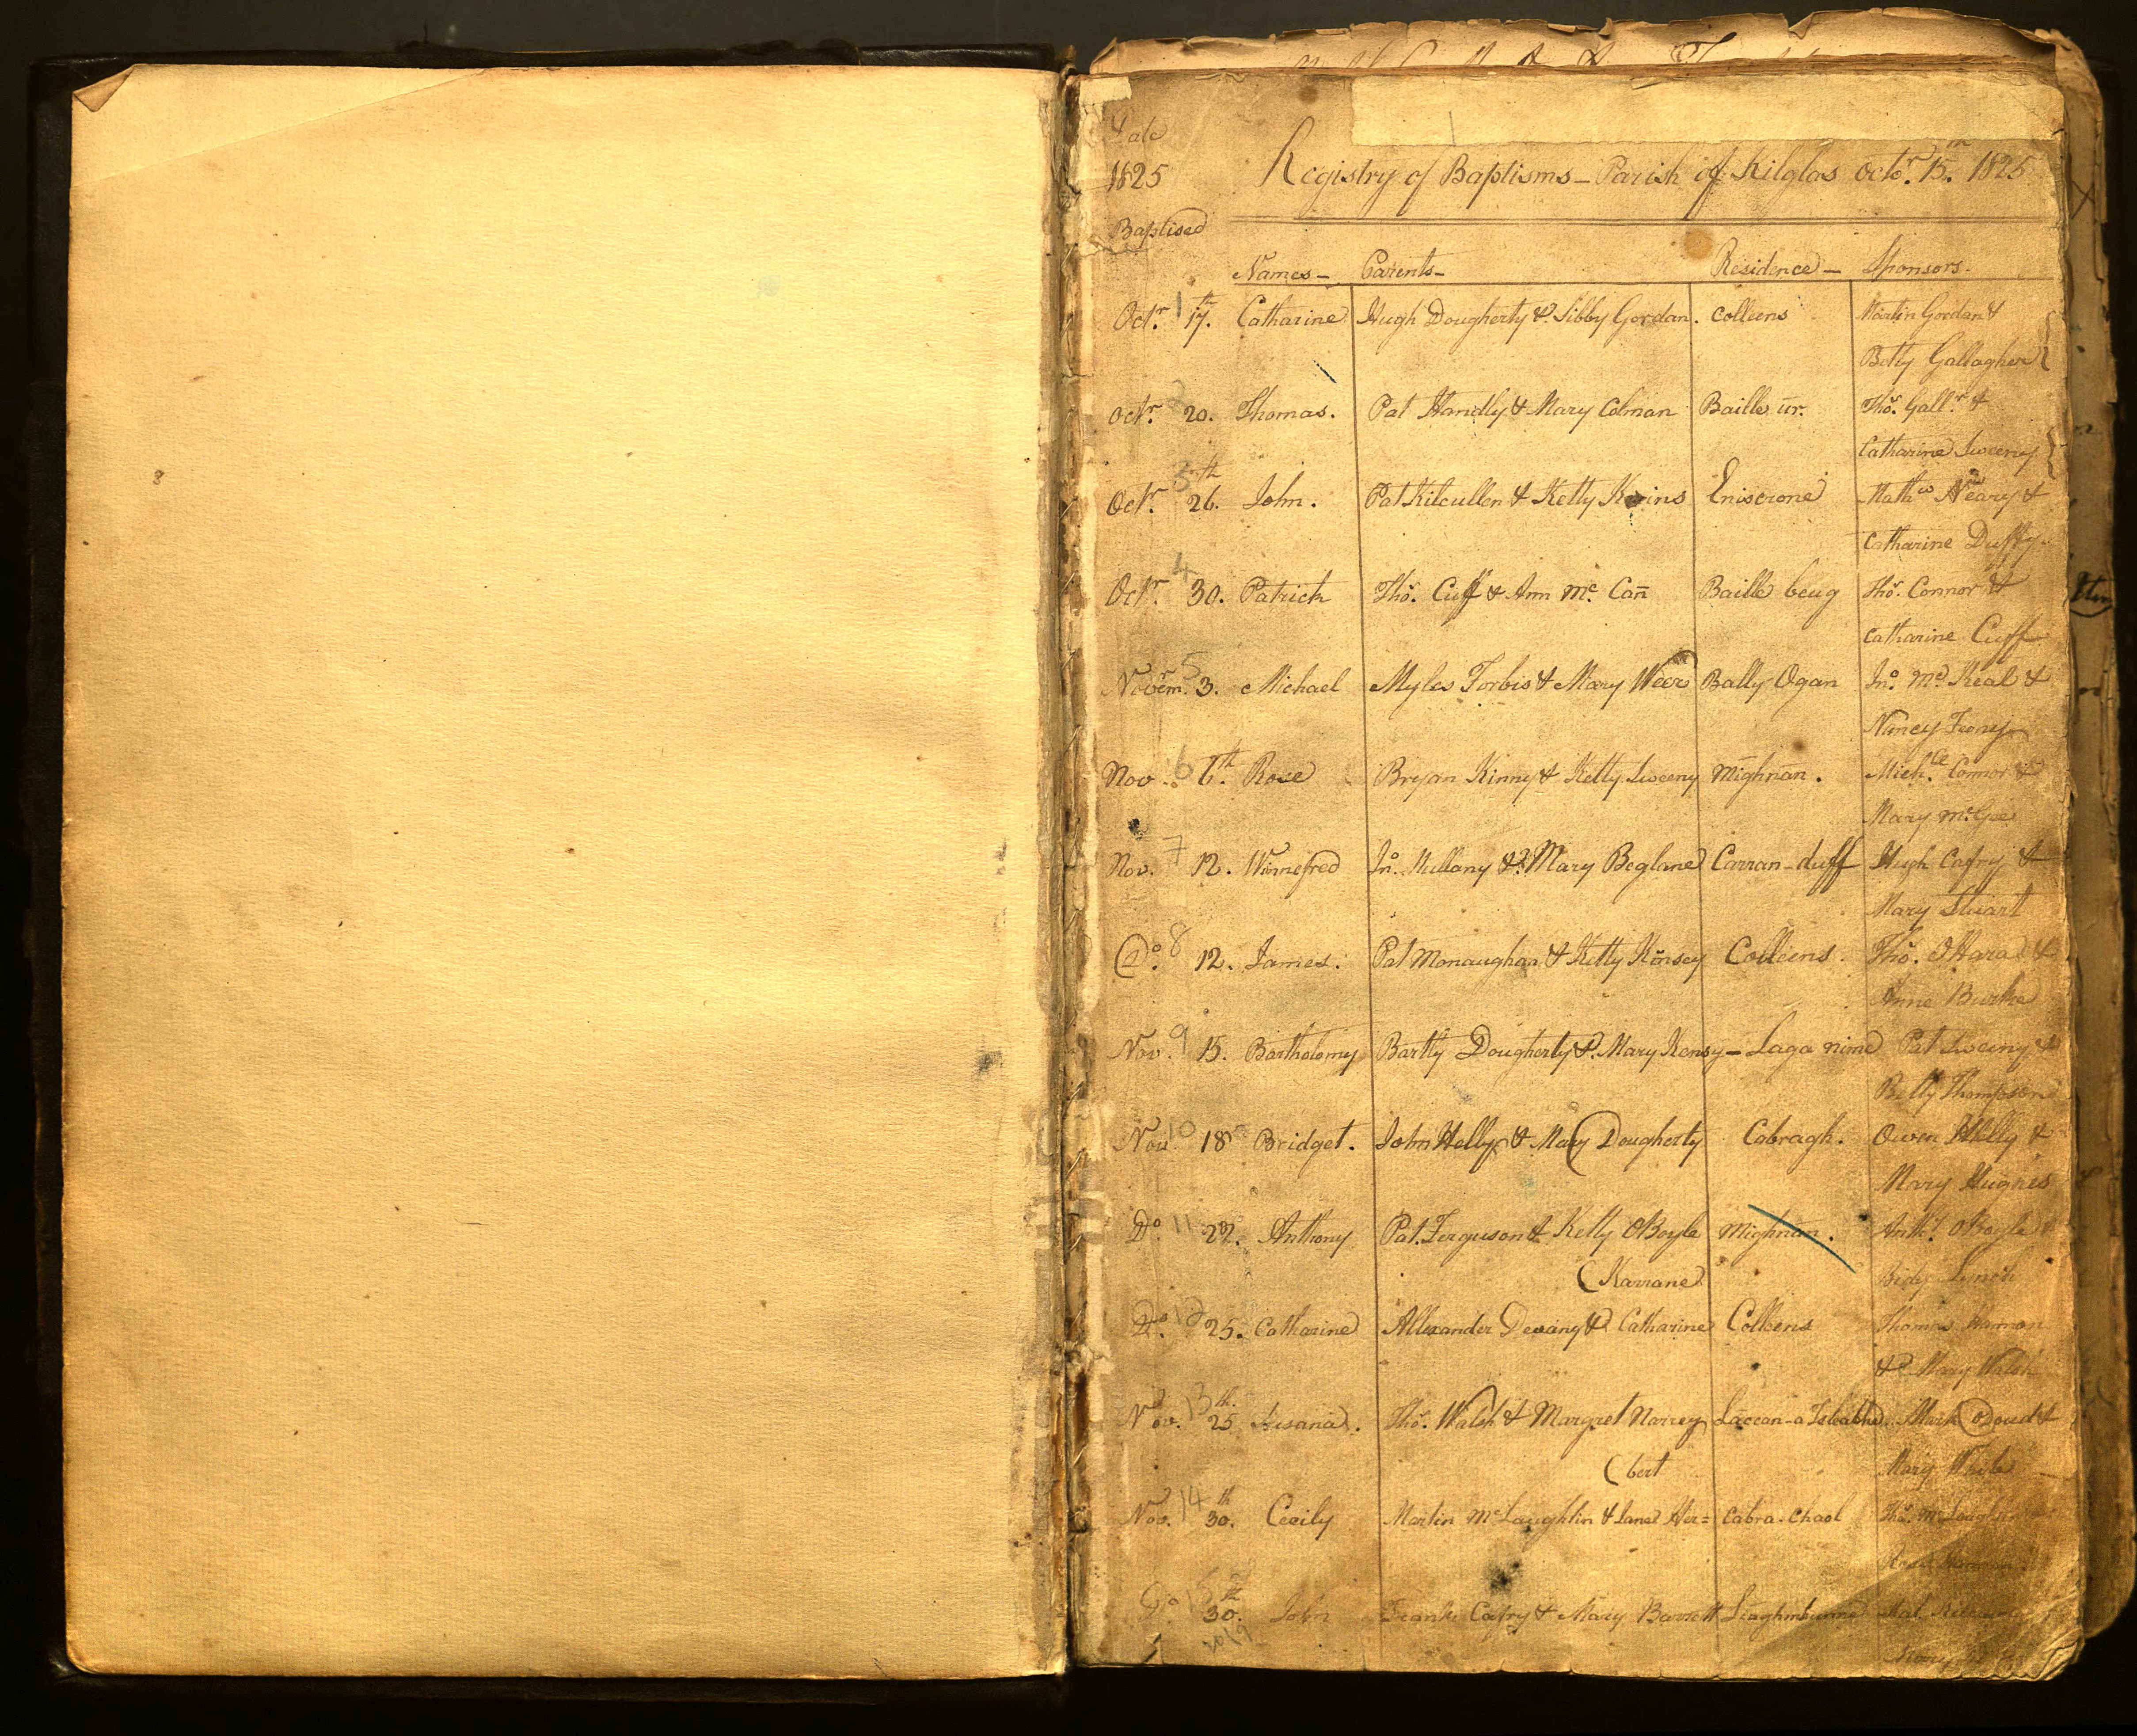 1825
Registry of Baptisms - Parish of Kilglas Octr. 15th. 1825
Baptised
Names - Parents - Residence - Sponsors.
Octr. 1 17th. Catharine Hugh Dougherty & Sibby Gordan. Colleens Martin Gordan &
Betty Gallagher
Octr. 2 20. Thomas. Pat Handly & Mary Colman Baille ur. Thos. Gallr. &
Catharine Sweeny
Octr. 3 26th. John. Pat Kilcullen & Ketty Eniscrone Mathw Neary &
Catharine Duffy
Octr. 4 30. Patrick Thos. Cuff & Ann Mc. Can̄ Baille beug Thos. Connor &
Catharine Cuff
Novemr. 5 3. Michael Myles Forbis & Mary Weer Bally Ogan Jno. Mc. Keal &
Nancy Feony
Nov. 6 6th. Rose Bryan Kinny & Ketty Sweeny Mighnan. Michle. Connor &
Mary McGee
Nov. 7 12. Winnefred Jno. Mullany & Mary Beglane Carran-duff Hugh Cafry &
Mary Stuart
Do. 8 12. James. Pat Monaughan & Ketty Kinsey Colleens. Thos. OHara &
Anne Burke
Nov. 9 15. Bartholomy Bartly Dougherty & Mary Kensy - Laga nime Pat Sweeny &
Betty Thompson
Nov. 10 18 Bridget. John Helly & Mary Dougherty Cabragh. Owen Helly &
Mary Hughes
Do. 11 22. Anthony Pat. Ferguson & Ketty OBoyle Mighnan. Anthy. OBoyle
Bidy Lynch
(Karrane
Do. 12 25. Catharine Allexander Devany & Catharine Colleens Thomas Hannon
& Mary Walsh
Nov. 13 25th. Thos. Walsh & Margret Nairey Mark Doud &
Mary
(bert
Nov. 14 30th. Cecily Martin McLaughlin & Jane Her= Cabra-Chaol Thos. McLaughlin
Do. 15 30th. John Frank Cafry & Mary Barrett